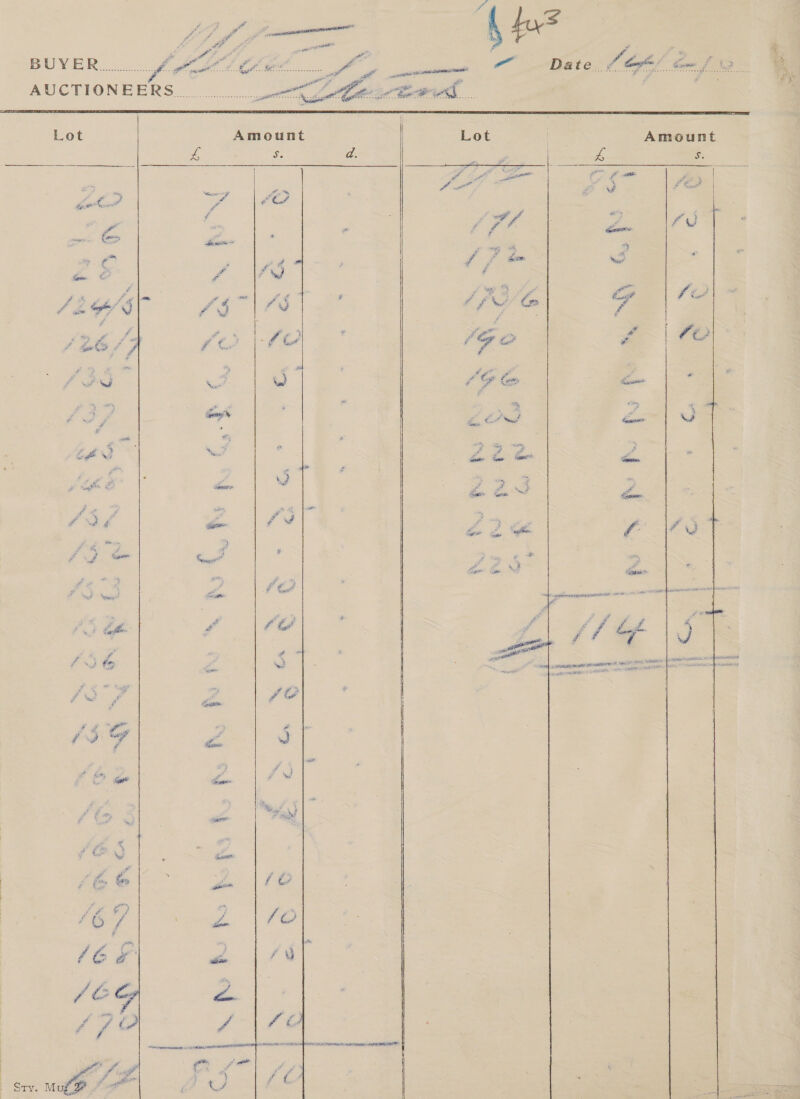 £43
BUYER Date 14/2/10
AUCTIONEERS Stevens
Lot Amount Lot Amount
£ s. d. £ s.
B/F 85 10
20 7 10
26 2 .
28 1 15
124/5 15 15
126/7 10 10
135 3 5
137 4 .
145 3 .
148 2 5
151 2 15
152 3 .
153 2 10
154 1 10
156 2 5
157 2 10
159 2 5
162 2 15
163 2 15
165 2
166 2 10
167 2 10
168 2 15
169 2 .
170 1 10
C/F 85 10
171 2 15
172 3 .
173/6 9 10
190 1 10
196 2 .
203 2 5
222 2 .
223 2 .
224 1 15
225 2 .
£ 114 5